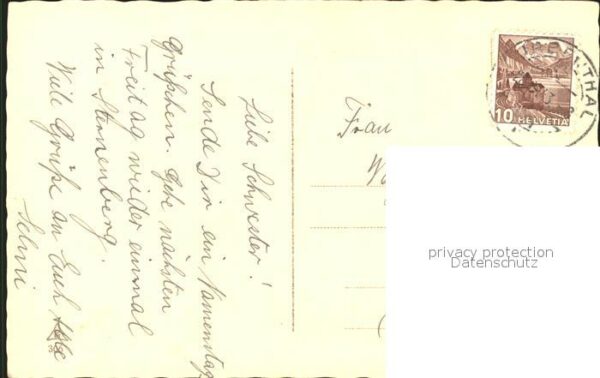 Liebe Schwester!
Sende Dir ein Namenstag
Grüsschen. Gehe nächsten
Freitag wieder einmal
in Sternenberg.
Viele Grüsse an Euch alle
Frau
HELVETIA
10
privacy protection
Datenschutz